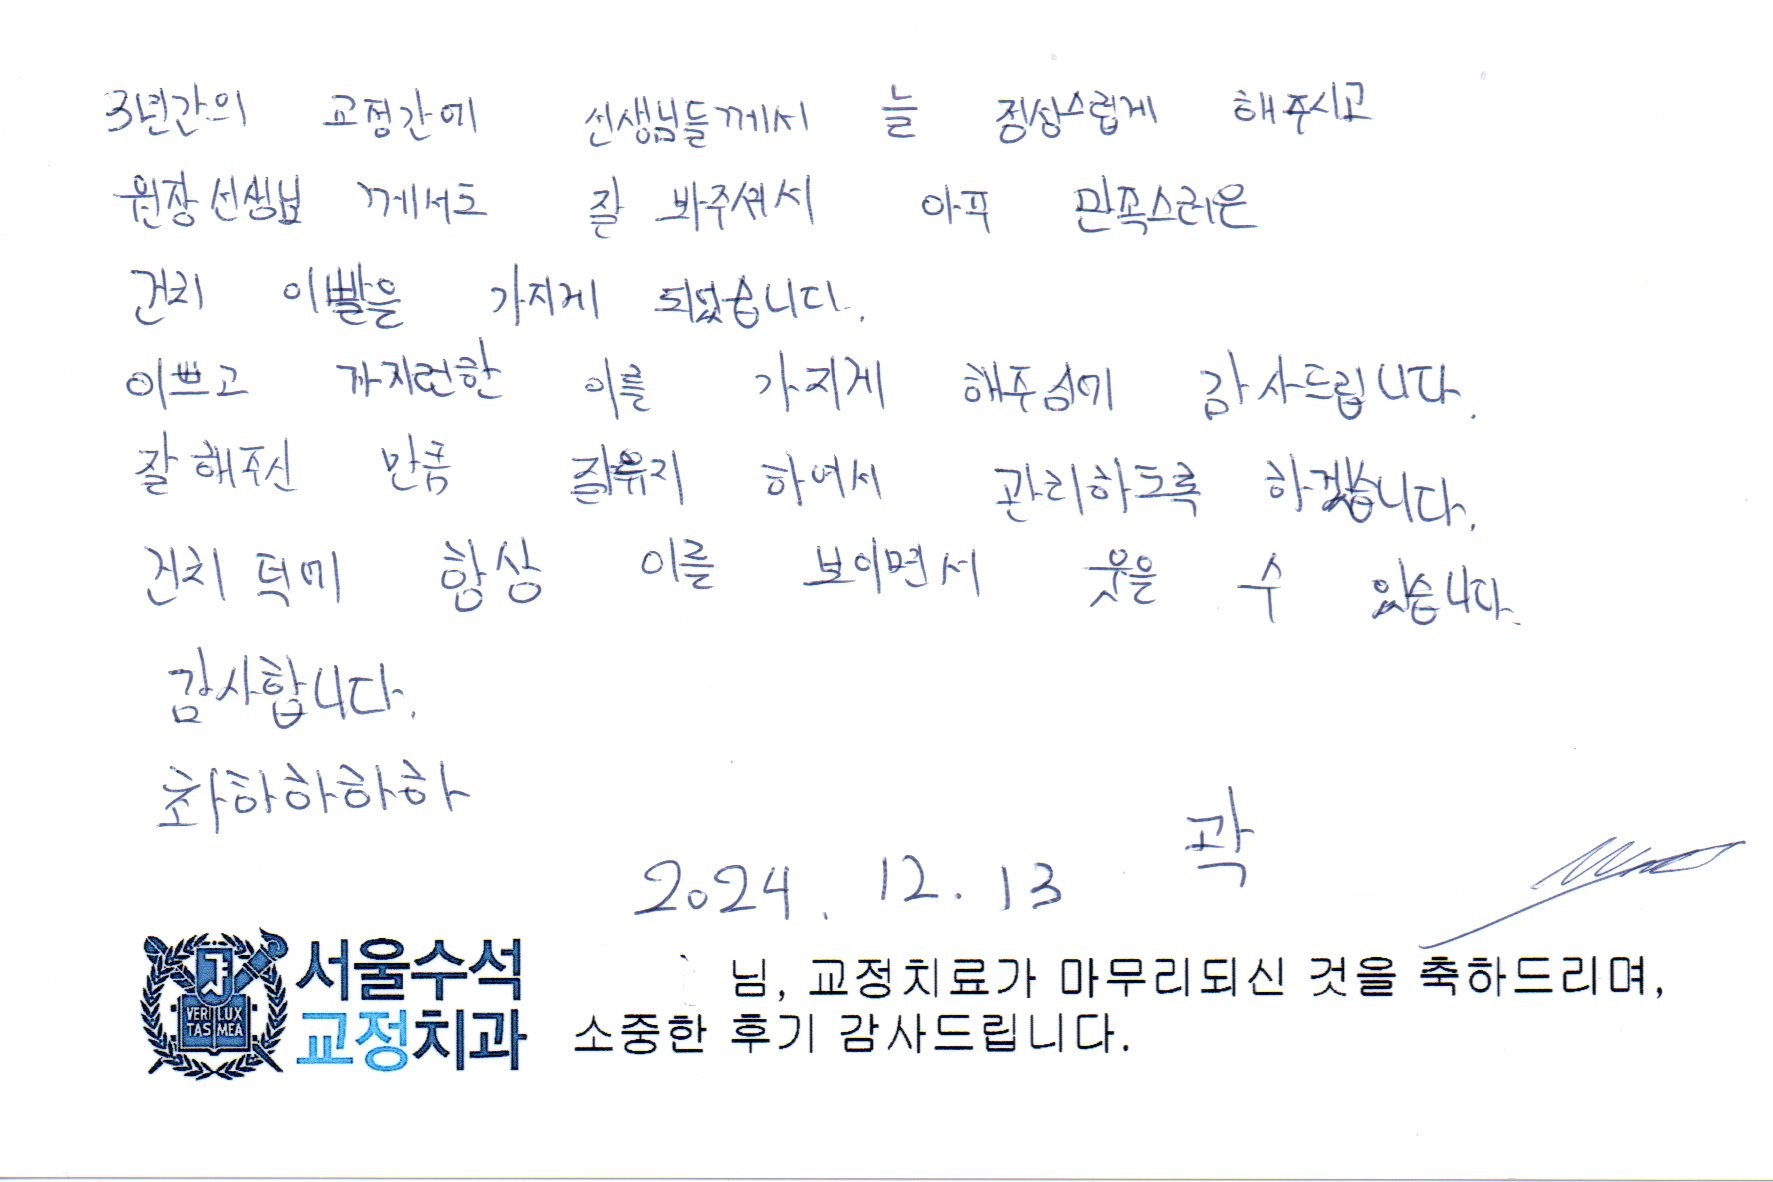 3년간의 교정간에 선생님들께서 늘 정성스럽게 해주시고
원장선생님 께서도 잘 봐주셔서 아푸 만족스러운
건치 이빨을 가지게 되었습니다.
이쁘고 가지런한 이를 가지게 해주심에 감사드립니다.
잘해주신 만큼 잘유지 하여서 관리하도록 하겠습니다.
건치 덕에 항상 이를 보이면서 웃을 수 있습니다.
감사합니다.
촤하하하하
2024. 12. 13 곽
서울수석
교정치과
VERI LUX
TAS MEA
님, 교정치료가 마무리되신 것을 축하드리며,
소중한 후기 감사드립니다.